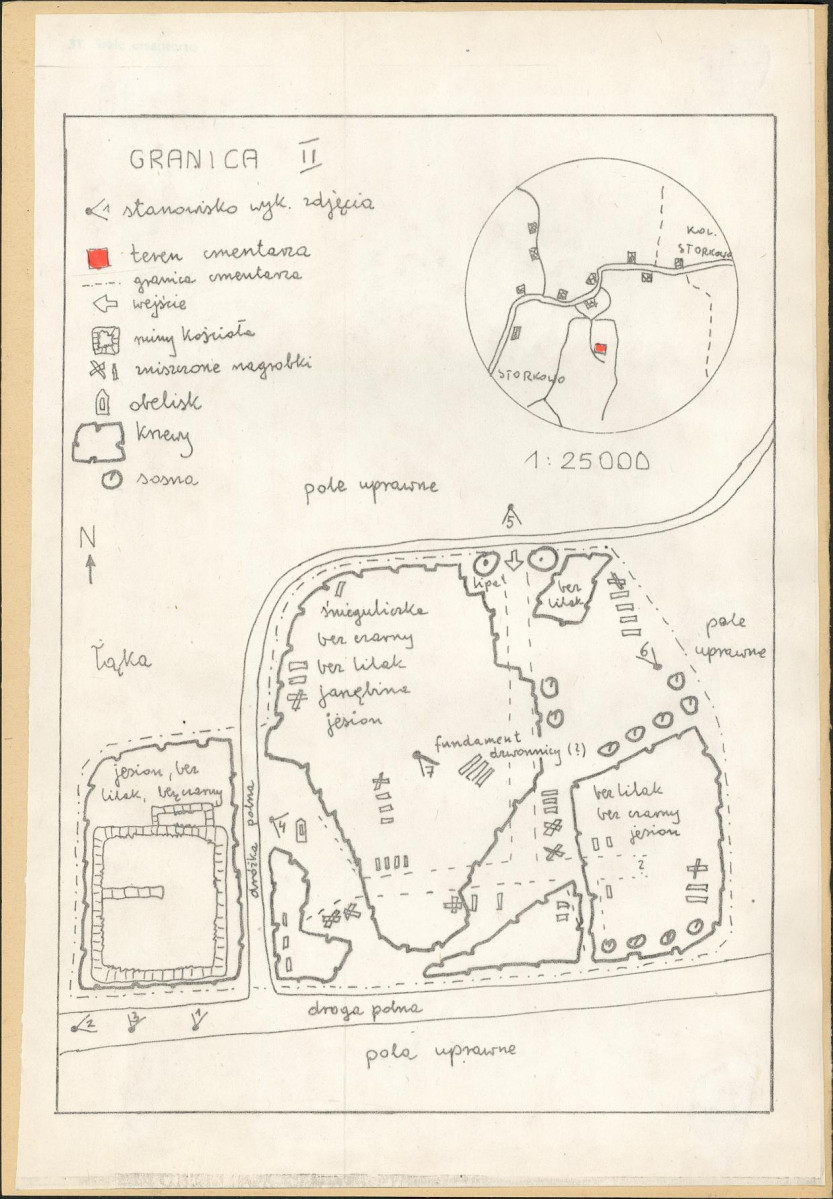 GRANICA II
1 stanowisko wyk. zdjęcia
teren cmentarza
granica cmentarza
wejście
ruiny kościoła
zniszczone nagrobki
obelisk
krzewy
sosna
KOL.
STORKOWO
STORKOWO
1:25000
pole uprawne
N
5
lipa
bez
lilak
śnieguliczka
bez czarny
bez lilak
jarzębina
jesion
6
pole
uprawne
Łąka
fundament
dzwonnicy (?)
7
jesion, bez
lilak, bez czarny
dróżka polna
4
bez lilak
bez czarny
jesion
?
droga polna
2
3
1
pola uprawne